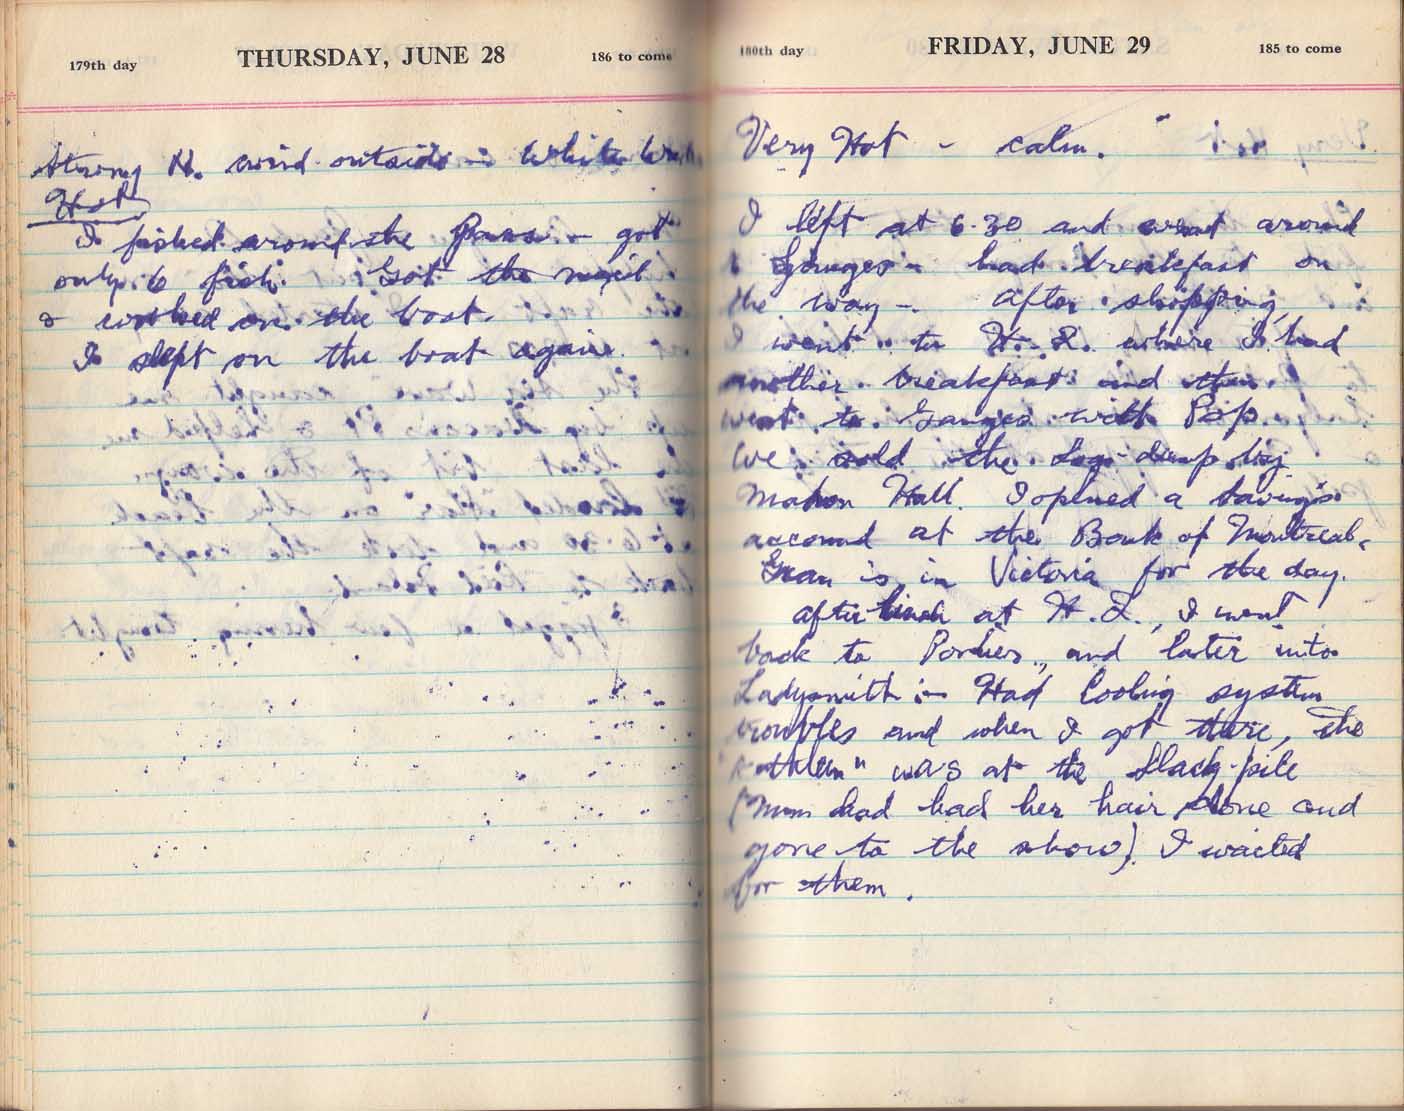 179th day THURSDAY, JUNE 28 186 to come
Strong N. wind outside - White
Hot
I fished around the Pass - got
only 6 fish. Got the mail
& worked on the boat.
I slept on the boat again.
180th day FRIDAY, JUNE 29 185 to come
Very Hot - calm.
I left at 6.30 and went around
Ganges - had breakfast on
the way - After shopping,
I went to H. L. where I had
another breakfast and then
went to Ganges with Pop.
We sold the Log dump by
Mahon Hall. I opened a savings
account at the Bank of Montreal.
Gran is in Victoria for the day.
After lunch at H.L., I went
back to Porliers, and later into
Ladysmith - Had Cooling system
troubles and when I got there, the
Kathleen" was at the Slack-pile
(Mum had had her hair done and
gone to the show). I waited
for them.